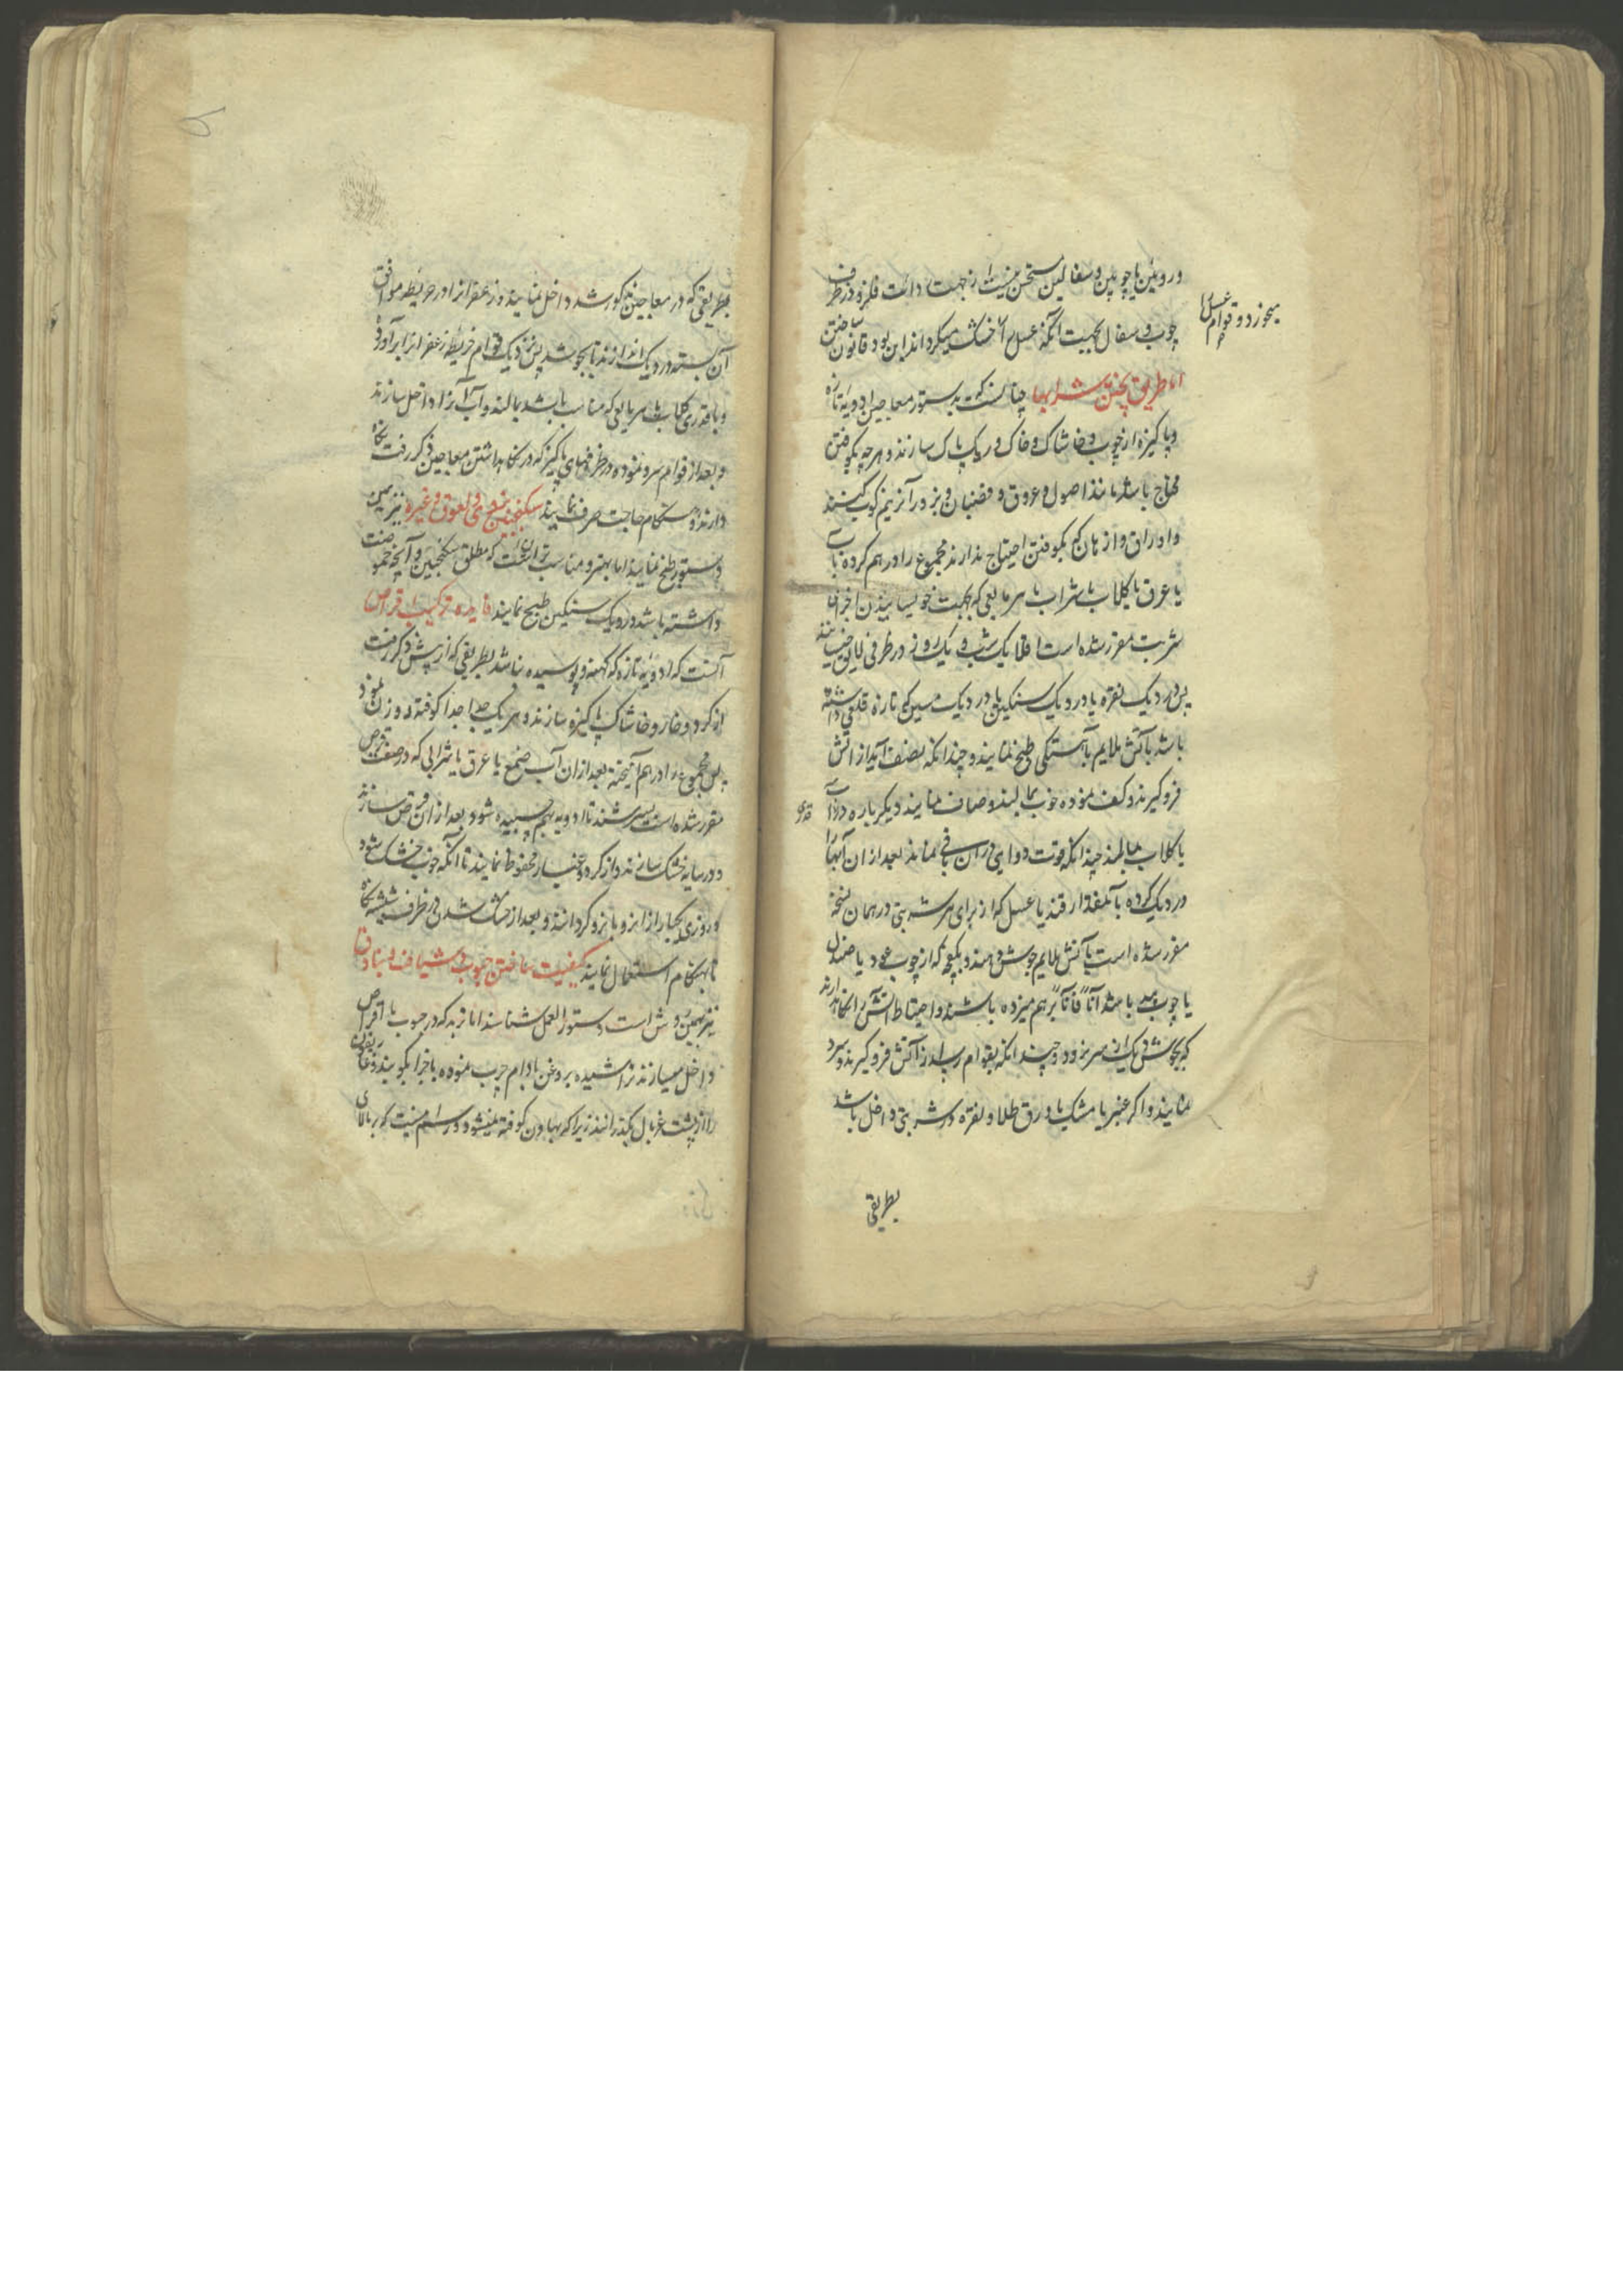 و رویین یا چوبین و سفالین مستحسن نیست از جهت دائت فلز و در ظرف
چوب و سفال بجهت آنکه عسل را خشک میکرداند این بود قانون ساختن
میخورد و قوام عسل را
اما طریق پختن شرابها چنانست که بدستور معاجین ادویه تازه
و پاکیزه از چوب و خاشاک و خاک و ریک پاک سازند و هرچه بکوفتن
محتاج باشد مانند اصول و عروق و قضبان و بزور آنرا نیم کوب کنند
و اوراق و ازهار که بکوفتن احتیاج ندارند مجموع را در هم کرده با آب
یا عرق یا کلاب یا شراب یا هر مایعی که بجهت خویسانیدن اجزای آن
شربت مقرر شده است اقلا یک شب و یک روز در ظرفی لایق خیسانند
پس در دیک نقره یا در دیک سنکین یا در دیک مسین که تازه قلعی داشته
باشد بآتش ملایم بآهستکی طبخ نمایند و چندانکه بنصف آید از آتش
فرو کیرند و کف نموده خوب بمالند و صاف نمایند دیکر باره در آب
قدری
یا کلاب بمالند چندانکه قوت دوای در آن باقی نماند بعد از آن آبها را
در دیک کرده با آنمقدار قند یا عسل که از برای هر شربتی در همان نسخه
مقرر شده است بآتش ملایم جوش دهند و بکفچه که از چوب عود یا صندل
یا چوب بید باشد آناً فآناً بر هم میزده باشند و احتیاط آتش را نکاه دارند
که بجوش دیک از سر نرود و چندانکه بقوام رسد از آتش فرو کیرند و سرد
نمایند و اکر عنبر یا مشک یا ورق طلا و نقره در شربتی داخل باشد
بطریقی
بطریقی که در معاجین مذکور شد داخل نمایند و زعفرانرا در خریطه موافق
آن بسته در دیک اندازند تا بجوشد پس نزدیک قوام خریطه زعفرانرا برآورده
و با قدری کلاب یا هر مایعی که مناسب باشد بمالند و آب آنرا داخل سازند
و بعد از قوام سرد نموده در ظرفهای پاکیزه که در نکاهداشتن معاجین ذکر رفت نکاه
دارند و هنکام حاجت صرف نمایند سکنجبین بزوری و لعوق و غیره نیز بهمین
دستور طبخ نمایند اما بهتر و مناسب تر آنست که مطلق سکنجبین و آنچه حموضت
داشته باشد در دیک سنکین طبخ نمایند فایده ترکیب اقراص
آنست که ادویه تازه که کهنه و پوسیده نباشد بطریقی که از پیش ذکر رفت
از کرد و خار و خاشاک پاکیزه سازند و هر یک جدا جدا کوفته و وزن نموده
پس مجموع را در هم آمیخته بعد از آن آب صمغ یا عرق یا شرابی که در صفت قرص
مقرر شده است بسرشند تا ادویه بهم چسپیده شود بعد از آن قرص سازند
و در سایه خشک سازند و از کرد و غبار محفوظ نمایند تا آنکه خوب خشک شود
و روزی یکبار از این رو بآن رو کردانند و بعد از خشک شدن در ظرف شیشه نکاه
تا بهنکام استعمال نمایند کیفیت ساختن حبوب و شیافات و بنادق
نیز بهمین روش است دستور العمل شناسند اما تربد که در حبوب یا اقراص
داخل میسازند تراشیده بروغن بادام چرب نموده با اجزا بکوبند و غاریقون
را از پشت غربال بکذرانند زیرا که بهاون کوفته نمیشود و در اسم نیست که بر بالای